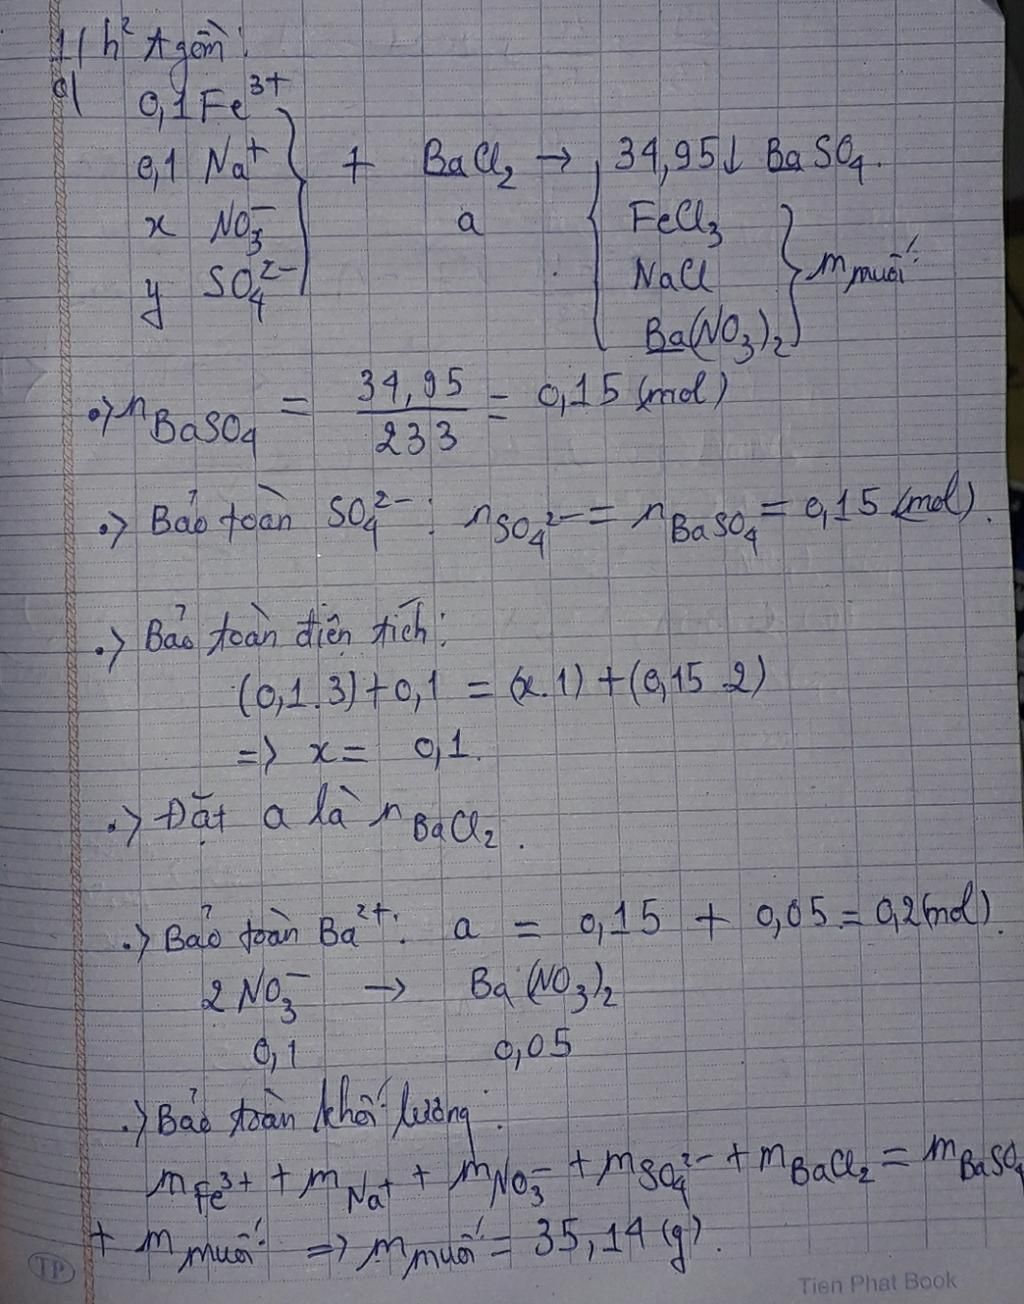 1/ h² A gồm:
a/ 0,1 Fe³⁺
0,1 Na⁺ + BaCl₂ → 34,95↓ BaSO₄.
x NO₃⁻ a FeCl₃
y SO₄²⁻ NaCl } m muối
Ba(NO₃)₂
•> n BaSO₄ = 34,95 / 233 = 0,15 (mol)
•> Bảo toàn SO₄²⁻: n SO₄²⁻ = n BaSO₄ = 0,15 (mol).
•> Bảo toàn điện tích:
(0,1.3) + 0,1 = (x.1) + (0,15 2)
=> x = 0,1.
•> Đặt a là n BaCl₂.
•> Bảo toàn Ba²⁺: a = 0,15 + 0,05 = 0,2 (mol).
2 NO₃⁻ → Ba(NO₃)₂
0,1 0,05
•> Bảo toàn khối lượng:
m Fe³⁺ + m Na⁺ + m NO₃⁻ + m SO₄²⁻ + m BaCl₂ = m BaSO₄
+ m muối => m muối = 35,14 (g).
TP
Tien Phat Book